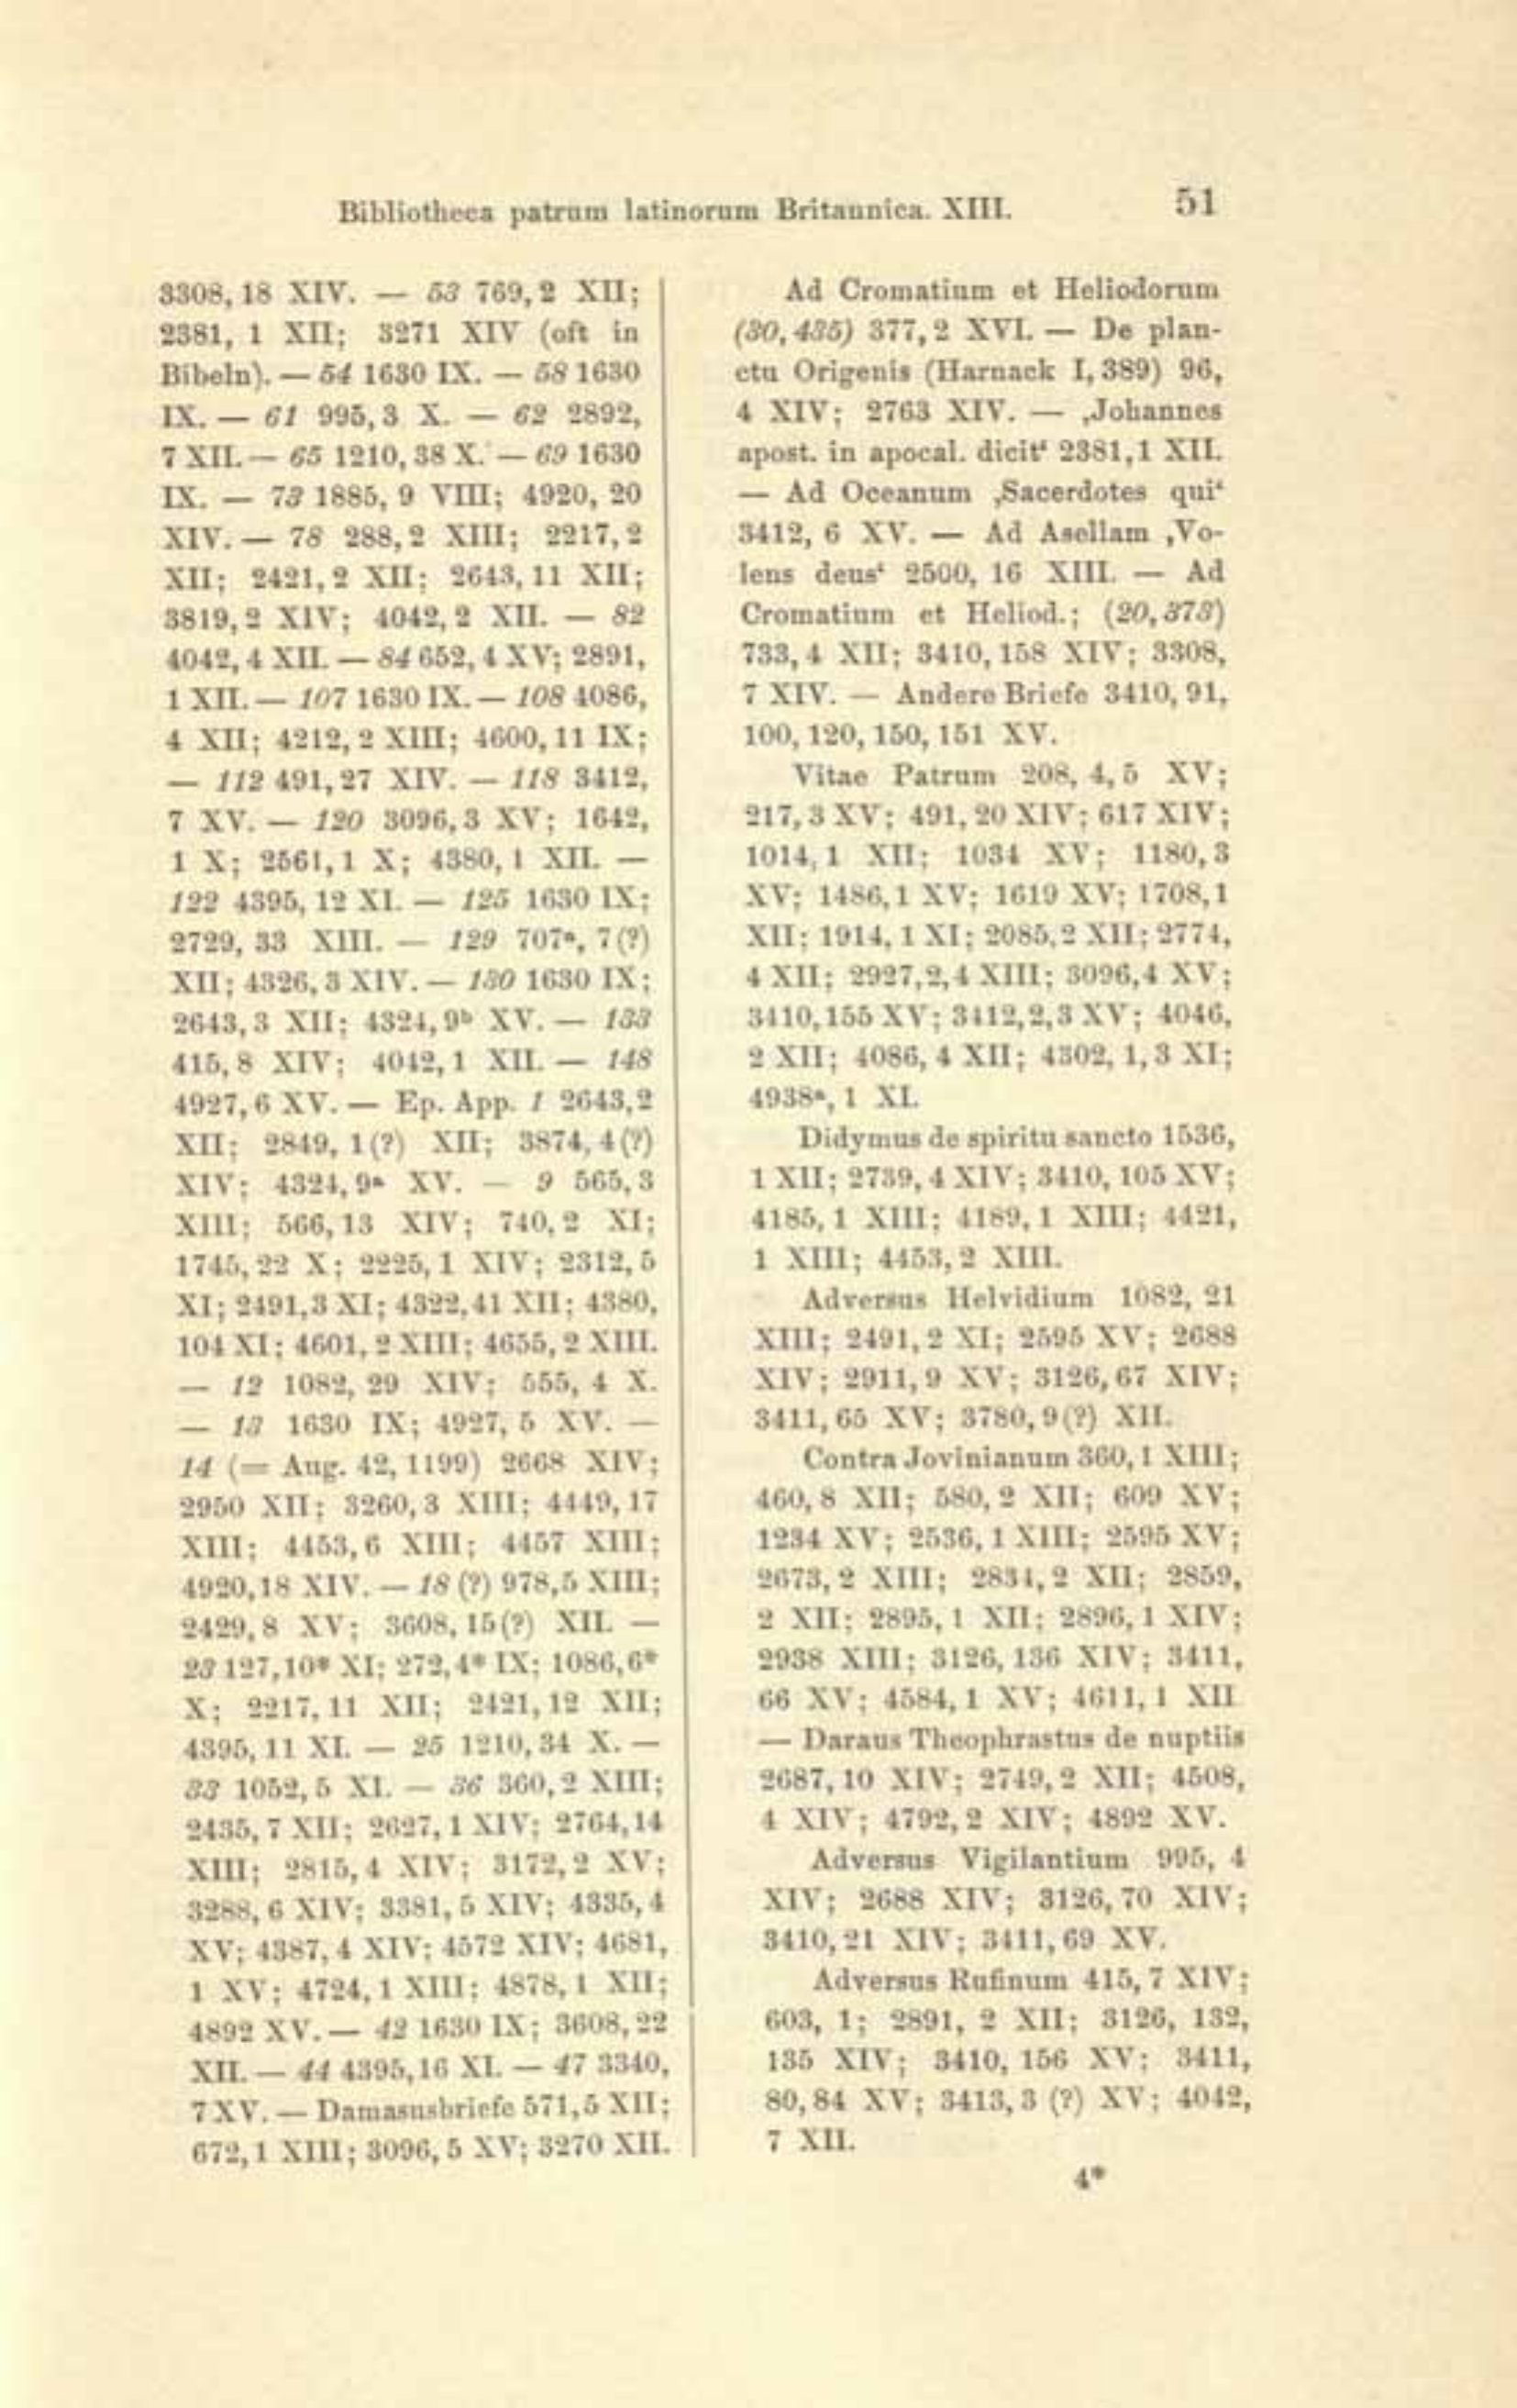 Bibliotheca patrum latinorum Britannica. XIII. 51
3308, 18 XIV. — 53 769, 2 XII;
2381, 1 XII; 3271 XIV (oft in
Bibeln). — 54 1630 IX. — 58 1630
IX. — 61 995, 3 X. — 62 2892,
7 XII. — 65 1210, 38 X. — 69 1630
IX. — 73 1885, 9 VIII; 4920, 20
XIV. — 78 288, 2 XIII; 2217, 2
XII; 2421, 2 XII; 2643, 11 XII;
3819, 2 XIV; 4042, 2 XII. — 82
4042, 4 XII. — 84 652, 4 XV; 2891,
1 XII. — 107 1630 IX. — 108 4086,
4 XII; 4212, 2 XIII; 4600, 11 IX;
— 112 491, 27 XIV. — 118 3412,
7 XV. — 120 3096, 3 XV; 1642,
1 X; 2561, 1 X; 4380, 1 XII. —
122 4395, 12 XI. — 125 1630 IX;
2729, 33 XIII. — 129 707ᵃ, 7 (?)
XII; 4326, 3 XIV. — 130 1630 IX;
2643, 3 XII; 4324, 9ᵇ XV. — 133
415, 8 XIV; 4042, 1 XII. — 148
4927, 6 XV. — Ep. App. 1 2643, 2
XII; 2849, 1 (?) XII; 3874, 4 (?)
XIV; 4324, 9ᵃ XV. — 9 565, 3
XIII; 566, 13 XIV; 740, 2 XI;
1745, 22 X; 2225, 1 XIV; 2312, 5
XI; 2491, 3 XI; 4322, 41 XII; 4380,
104 XI; 4601, 2 XIII; 4655, 2 XIII.
— 12 1082, 29 XIV; 555, 4 X.
— 13 1630 IX; 4927, 5 XV. —
14 (= Aug. 42, 1199) 2668 XIV;
2950 XII; 3260, 3 XIII; 4449, 17
XIII; 4453, 6 XIII; 4457 XIII;
4920, 18 XIV. — 18 (?) 978, 5 XIII;
2429, 8 XV; 3608, 15 (?) XII. —
23 127, 10* XI; 272, 4* IX; 1086, 6*
X; 2217, 11 XII; 2421, 12 XII;
4395, 11 XI. — 25 1210, 34 X. —
33 1052, 5 XI. — 36 360, 2 XIII;
2435, 7 XII; 2627, 1 XIV; 2764, 14
XIII; 2815, 4 XIV; 3172, 2 XV;
3288, 6 XIV; 3381, 5 XIV; 4335, 4
XV; 4387, 4 XIV; 4572 XIV; 4681,
1 XV; 4724, 1 XIII; 4878, 1 XII;
4892 XV. — 42 1630 IX; 3608, 22
XII. — 44 4395, 16 XI. — 47 3340,
7 XV. — Damasusbriefe 571, 5 XII;
672, 1 XIII; 3096, 5 XV; 3270 XII.
Ad Cromatium et Heliodorum
(30, 435) 377, 2 XVI. — De plan-
ctu Origenis (Harnack I, 389) 96,
4 XIV; 2763 XIV. — ‚Johannes
apost. in apocal. dicit‘ 2381, 1 XII.
— Ad Oceanum ‚Sacerdotes qui‘
3412, 6 XV. — Ad Asellam ‚Vo-
lens deus‘ 2500, 16 XIII. — Ad
Cromatium et Heliod.; (20, 373)
733, 4 XII; 3410, 158 XIV; 3308,
7 XIV. — Andere Briefe 3410, 91,
100, 120, 150, 151 XV.
Vitae Patrum 208, 4, 5 XV;
217, 3 XV; 491, 20 XIV; 617 XIV;
1014, 1 XII; 1034 XV; 1180, 3
XV; 1486, 1 XV; 1619 XV; 1708, 1
XII; 1914, 1 XI; 2085, 2 XII; 2774,
4 XII; 2927, 2, 4 XIII; 3096, 4 XV;
3410, 155 XV; 3412, 2, 3 XV; 4046,
2 XII; 4086, 4 XII; 4302, 1, 3 XI;
4938ᵃ, 1 XI.
Didymus de spiritu sancto 1536,
1 XII; 2739, 4 XIV; 3410, 105 XV;
4185, 1 XIII; 4189, 1 XIII; 4421,
1 XIII; 4453, 2 XIII.
Adversus Helvidium 1082, 21
XIII; 2491, 2 XI; 2595 XV; 2688
XIV; 2911, 9 XV; 3126, 67 XIV;
3411, 65 XV; 3780, 9 (?) XII.
Contra Jovinianum 360, 1 XIII;
460, 8 XII; 580, 2 XII; 609 XV;
1234 XV; 2536, 1 XIII; 2595 XV;
2673, 2 XIII; 2834, 2 XII; 2859,
2 XII; 2895, 1 XII; 2896, 1 XIV;
2938 XIII; 3126, 136 XIV; 3411,
66 XV; 4584, 1 XV; 4611, 1 XII
— Daraus Theophrastus de nuptiis
2687, 10 XIV; 2749, 2 XII; 4508,
4 XIV; 4792, 2 XIV; 4892 XV.
Adversus Vigilantium 995, 4
XIV; 2688 XIV; 3126, 70 XIV;
3410, 21 XIV; 3411, 69 XV.
Adversus Rufinum 415, 7 XIV;
603, 1; 2891, 2 XII; 3126, 132,
135 XIV; 3410, 156 XV; 3411,
80, 84 XV; 3413, 3 (?) XV; 4042,
7 XII.
4*